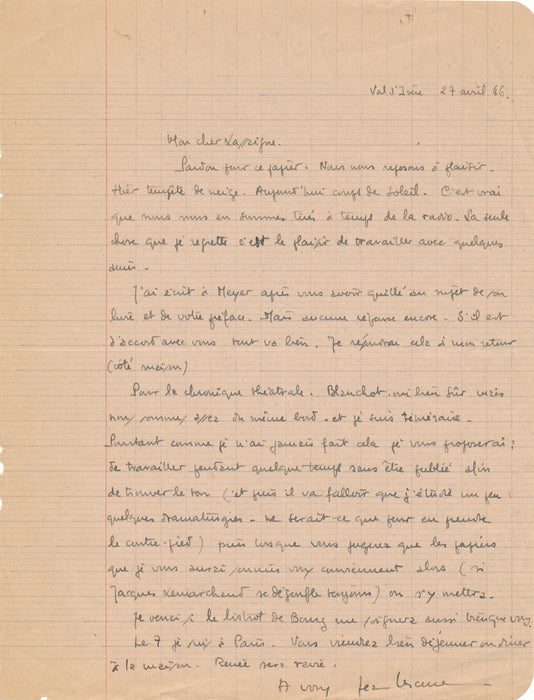 Val d'Isère 27 avril 46.
Mon cher Lassigne.
Pardon pour ce papier. Nous nous reposons à plaisir.
Hier tempête de neige. Aujourd'hui coups de soleil. C'est vrai
que nous nous en sommes tirés à temps de la radio. La seule
chose que je regrette c'est le plaisir de travailler avec quelques
amis.
J'ai écrit à Meyer après vous avoir quitté au sujet de son
livre et de votre préface. Mais aucune réponse encore. S'il est
d'accord avec vous tout va bien. Je réglerai cela à mon retour
(côté maison)
Pour la chronique théâtrale. Blanchot. oui bien sûr mais
nous sommes assez du même bord. et je suis téméraire.
Pourtant comme je n'ai jamais fait cela je vous proposerai :
de travailler pendant quelque temps sans être publié afin
de trouver le ton (et puis il va falloir que j'étudie un peu
quelques dramaturgies. ne serait-ce que pour en prendre
le contre-pied) puis lorsque vous jugerez que les papiers
que je vous aurai soumis vous conviennent alors (si
Jacques Lemarchand se dégonfle toujours) on s'y mettra.
Je venais le bistrot de Bourg me aussi
Le 7 je suis à Paris. Vous viendrez bien déjeuner ou dîner
à la maison. Renée sera ravie.
A vous Jean